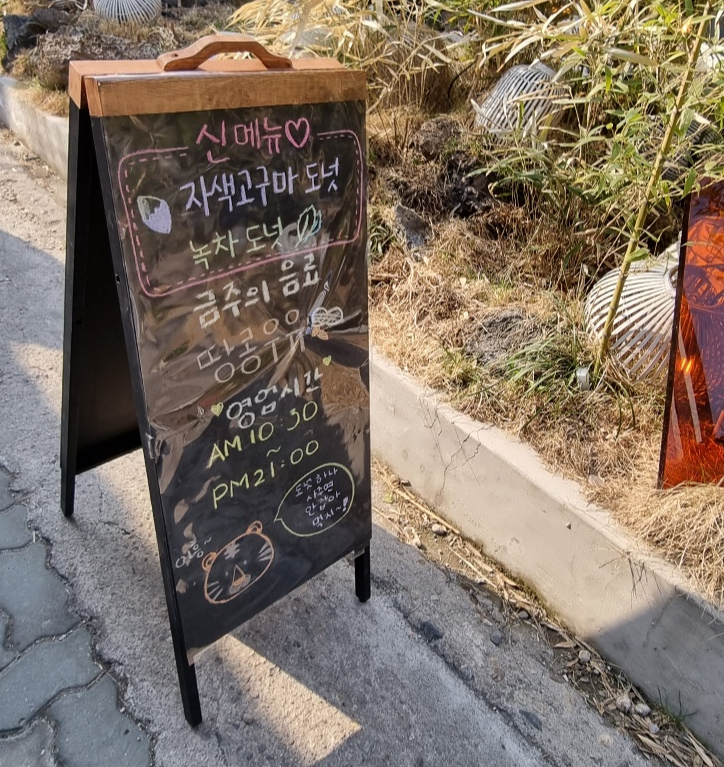 신 메뉴♡
자색고구마 도넛
녹차 도넛
금주의 음료
땅콩우유
영업시간
AM 10:30
~
PM 21:00
도넛 하나
사주면
안 잡아
먹지~!
어흥~